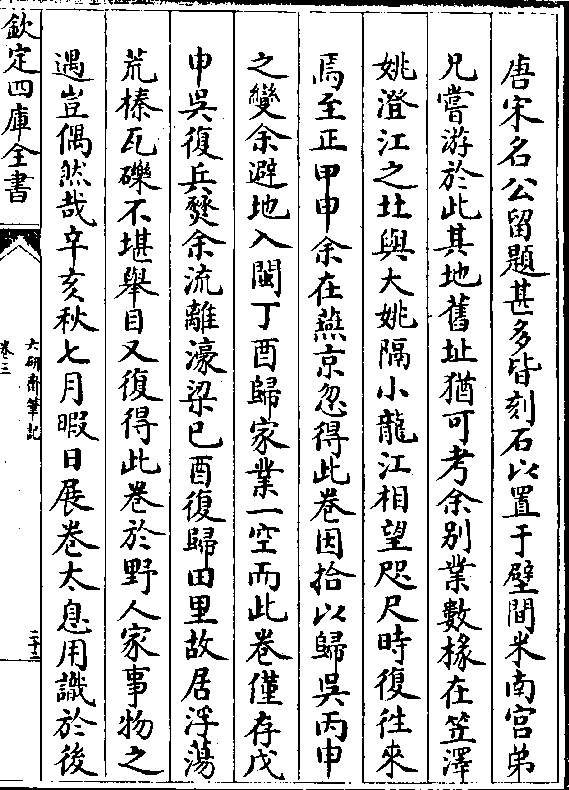 唐宋名公留題甚多皆刻石以置于壁間米南宫弟
兄嘗游於此其地舊址猶可考余别業數椽在笠澤
姚澄江之北與大姚隔小龍江相望咫尺時復往來
焉至正甲申余在燕京忽得此卷因拾以歸吳丙申
之變余避地入閩丁酉歸家業一空而此卷僅存戊
申吳復兵燹余流離濠梁已酉復歸田里故居浮蕩
荒榛瓦礫不堪舉目又復得此卷於野人家事物之
遇豈偶然哉辛亥秋七月暇日展卷太息用識於後
欽定四庫全書
六研齋筆記
卷三
三十二